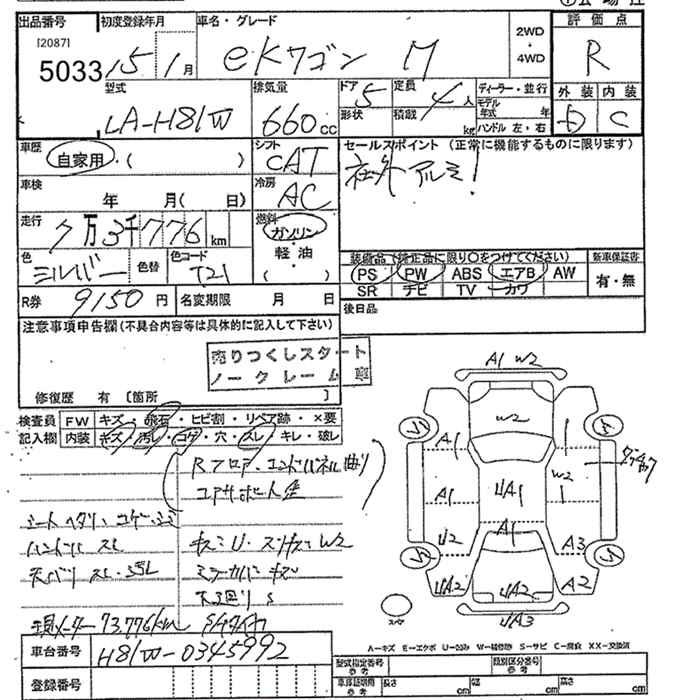 出品番号 初度登録年月 車名・グレード 評価点
[2087]
5033 15 1月 eKワゴン M 2WD・4WD R
型式 排気量 ドア 定員 ディーラー・並行 外装 内装
LA-H81W 660cc 5 4人 モデル年式 年 D C
形状 積載 kg ハンドル 左・右
車歴 シフト セールスポイント (正常に機能するものに限ります)
自家用・( ) CAT 社外アルミ!
車検 年 月( 日) 冷房 AC
走行 7万3千776km 燃料 ガソリン
軽油
( )
色 シルバー 色替 色コード T21
装備品(純正品に限り○をつけてください) 新車保証書
PS PW ABS エアB AW 有・無
SR ナビ TV カワ
R券 9150円 名変期限 月 日 後日品
注意事項申告欄(不具合内容等は具体的に記入して下さい)
売りつくしスタート
ノークレーム車
修復歴 有 [箇所 ]
検査員 FW キズ・飛石・ヒビ割・リペア跡・×要
記入欄 内装 キズ・汚レ・コゲ・穴・スレ・キレ・破レ
Rフロア・エンドパネル曲り
シートヘタリ・コゲ・シミ
ハンドル スレ キズミU・スリキズW2
天バリ スレ・汚レ
下廻りS
現メーター73,776km
A1 W2
W2
A1
A1 UA1 W2
A1
U2 A3
UA2 UA2 A2
UA3
スペア
A-キズ E-エクボ U-凹み W-補修跡 S-サビ C-腐食 XX-交換済
車台番号 H81W-0345992
登録番号
型式指定番号 参考 類別区分番号 参考
車庫証明用 参考 長さ cm 幅 cm 高さ cm